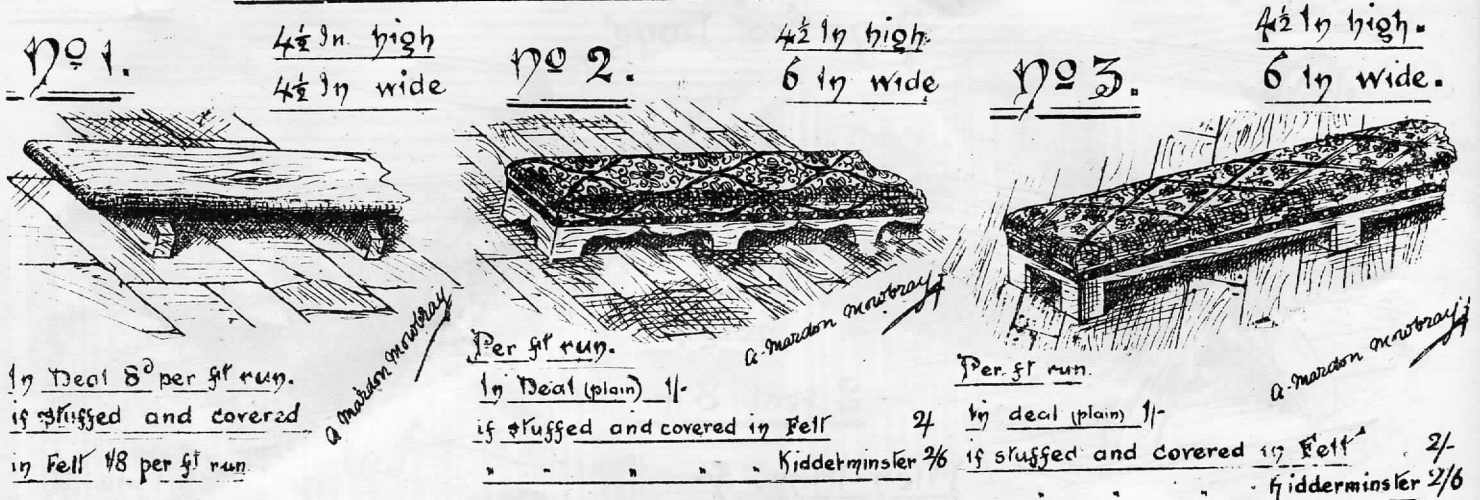 No 1.
4½ In high
4½ In wide
A Mardon Mowbray
In Deal 8d per ft run.
if stuffed and covered
in Felt 1/8 per ft run
No 2.
4½ In high.
6 In wide
A. Mardon Mowbray
Per ft run.
In Deal (plain) 1/-
if stuffed and covered in Felt 2/
" " " " " Kidderminster 2/6
No 3.
4½ In high.
6 In wide.
A. Mardon Mowbray
Per ft run.
in deal (plain) 1/-
if stuffed and covered in Felt 2/-
" " " " Kidderminster 2/6